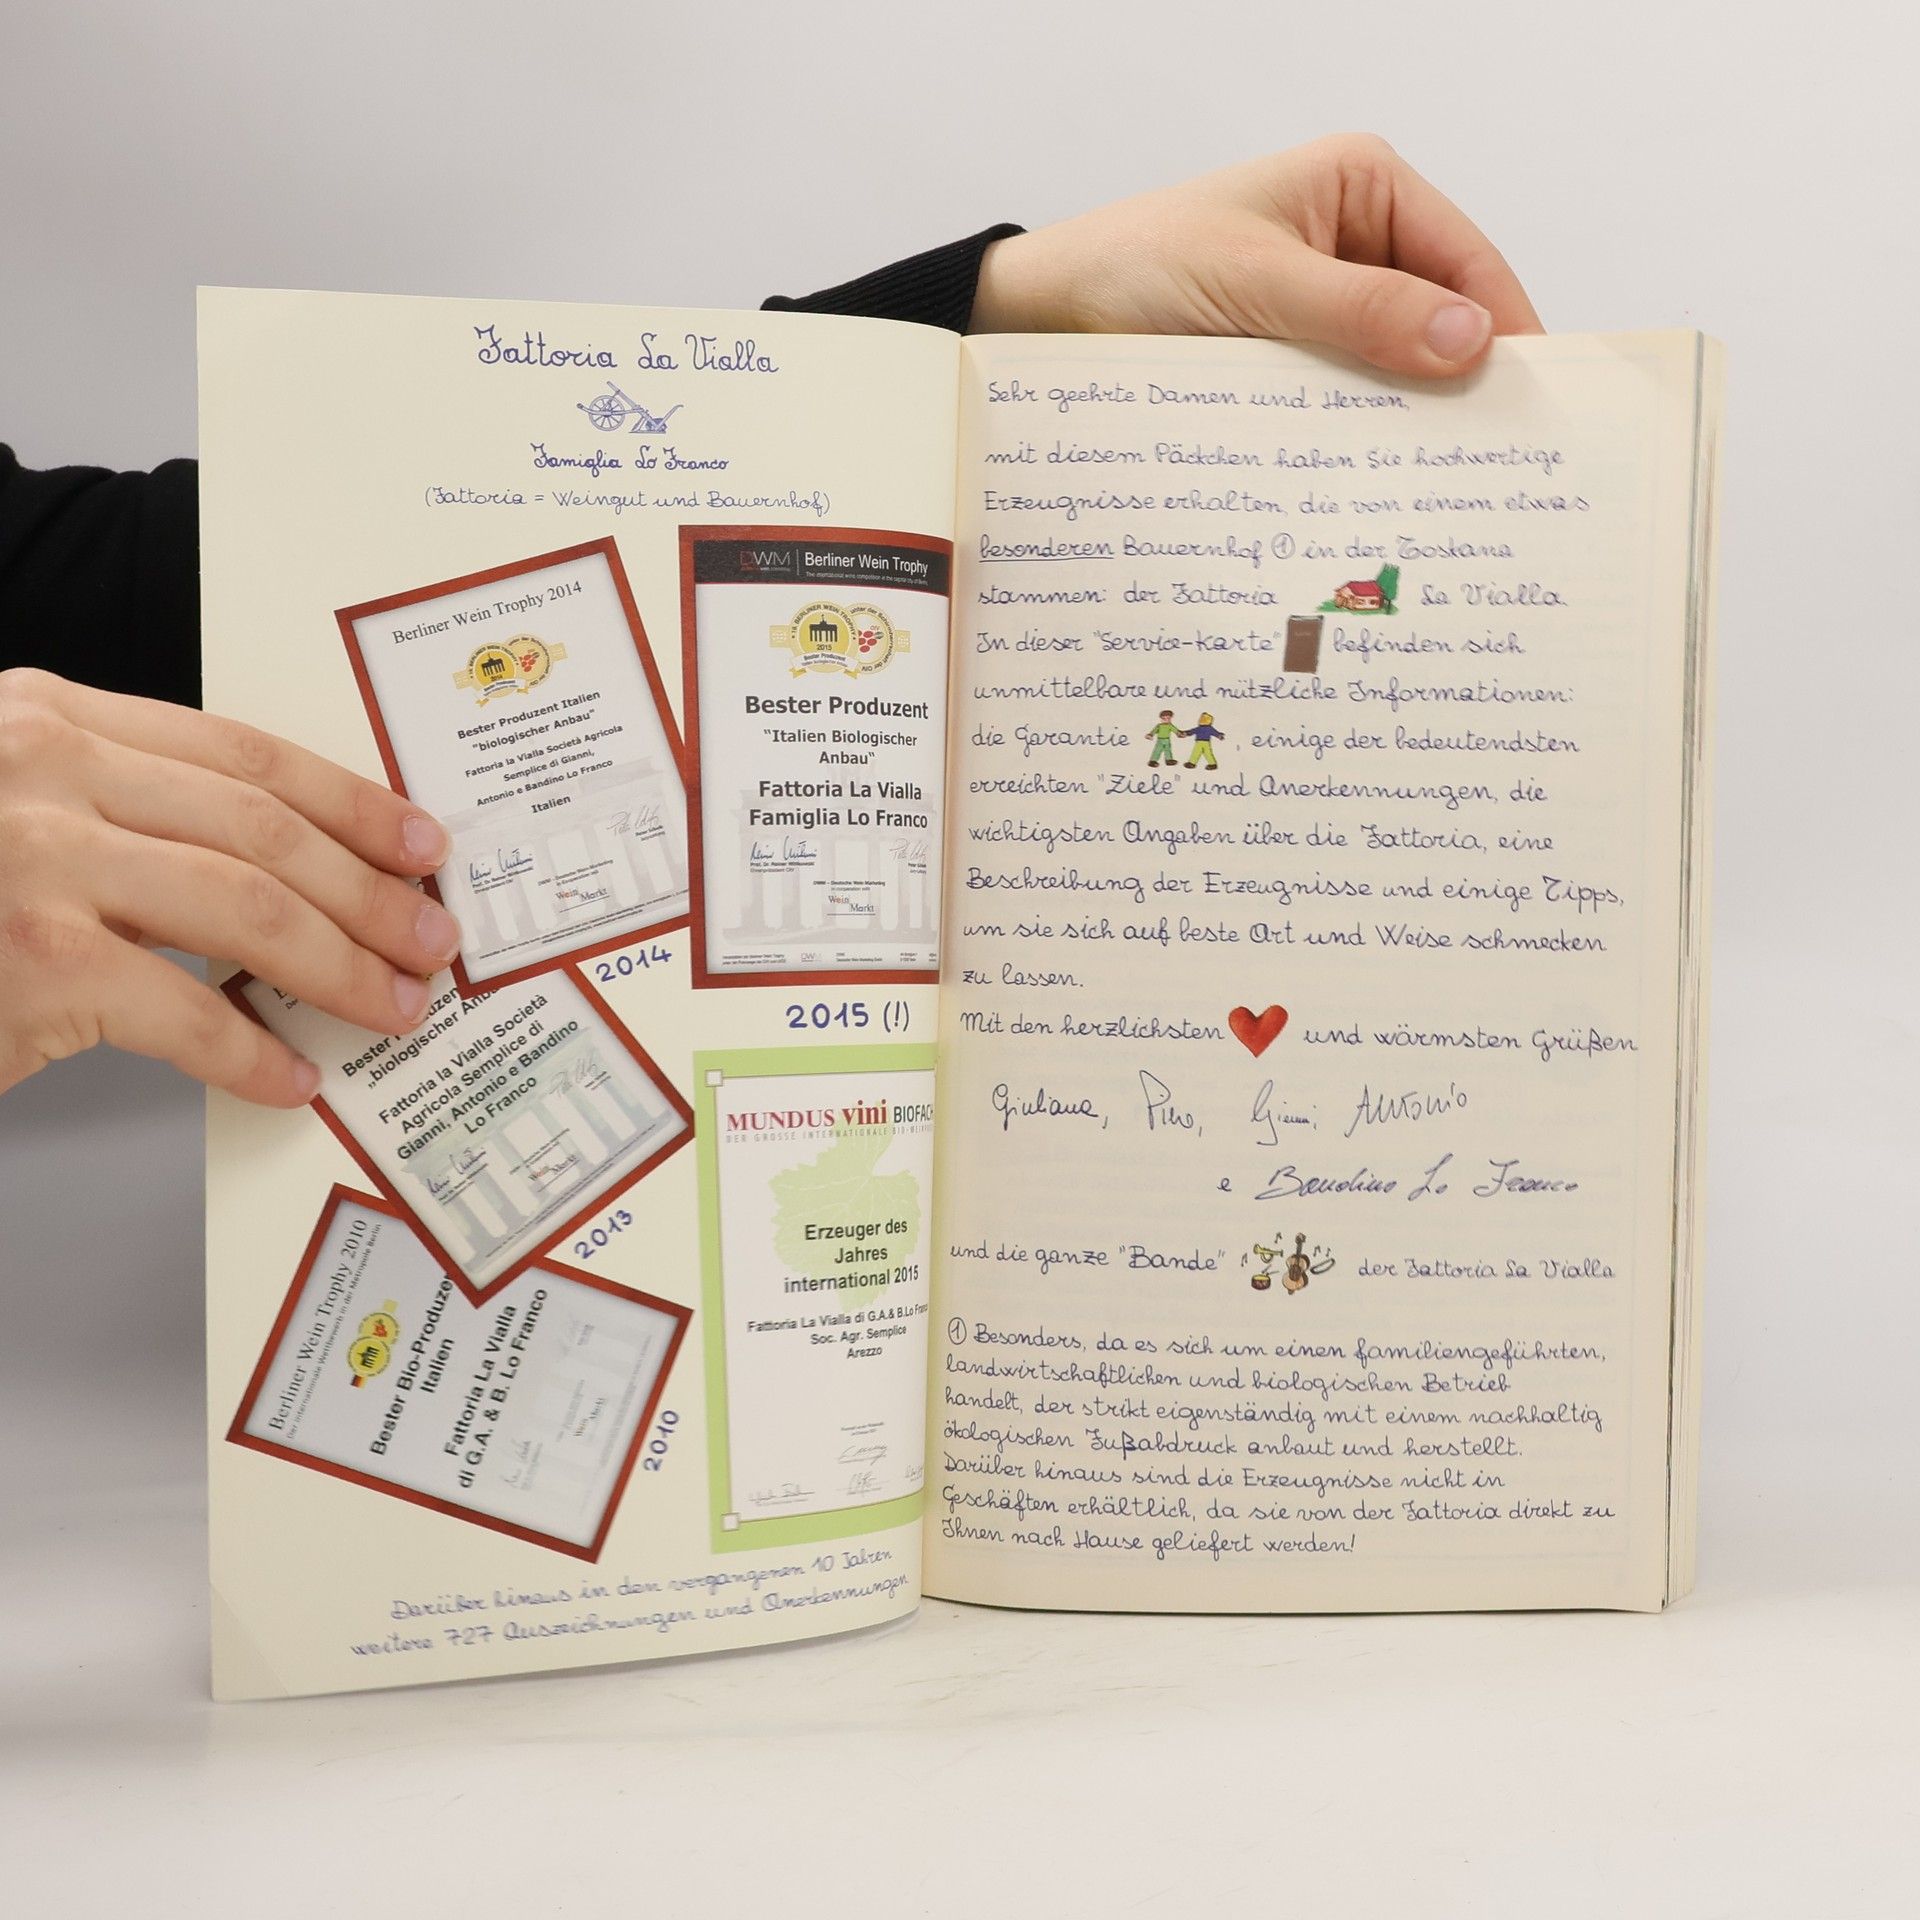 Fattoria La Vialla
Famiglia Lo Franco
(Fattoria = Weingut und Bauernhof)
Berliner Wein Trophy 2014
Bester Produzent Italien
"biologischer Anbau"
Fattoria la Vialla Società Agricola
Semplice di Gianni,
Antonio e Bandino Lo Franco
Italien
Wein Markt
2014
DWM Berliner Wein Trophy
The international wine competition in the capital city of
BERLINER WEIN TROPHY
2015
Bester Produzent
Bester Produzent
"Italien Biologischer
Anbau"
Fattoria La Vialla
Famiglia Lo Franco
DWM - Deutsche Wein Marketing
in cooperation with
Wein Markt
2015 (!)
Bester
„biologischer Anbau
Fattoria la Vialla Società
Agricola Semplice di
Gianni, Antonio e Bandino
Lo Franco
Wein Markt
2013
Berliner Wein Trophy 2010
Der internationale Wettbewerb in der Metropole Berlin
Bester Bio-Produzen
Italien
Fattoria La Vialla
di G.A. & B. Lo Franco
Wein Markt
2010
MUNDUS vini BIOFACH
DER GROSSE INTERNATIONALE
Erzeuger des
Jahres
international 2015
Fattoria La Vialla di G.A.& B.Lo Franco
Soc. Agr. Semplice
Arezzo
Darüber hinaus in den vergangenen 10 Jahren
weitere 727 Auszeichnungen und Anerkennungen
Sehr geehrte Damen und Herren,
mit diesem Päckchen haben Sie hochwertige
Erzeugnisse erhalten, die von einem etwas
besonderen Bauernhof ① in der Toskana
stammen: der Fattoria La Vialla.
In dieser "Service-Karte" befinden sich
unmittelbare und nützliche Informationen:
die Garantie , einige der bedeutendsten
erreichten "Ziele" und Anerkennungen, die
wichtigsten Angaben über die Fattoria, eine
Beschreibung der Erzeugnisse und einige Tipps,
um sie sich auf beste Art und Weise schmecken
zu lassen.
Mit den herzlichsten und wärmsten Grüßen
Giuliana, Piero, Gianni, Antonio
e Bandino Lo Franco
und die ganze "Bande" der Fattoria La Vialla
① Besonders, da es sich um einen familiengeführten,
landwirtschaftlichen und biologischen Betrieb
handelt, der strikt eigenständig mit einem nachhaltig
ökologischen Fußabdruck anbaut und herstellt.
Darüber hinaus sind die Erzeugnisse nicht in
Geschäften erhältlich, da sie von der Fattoria direkt zu
Ihnen nach Hause geliefert werden!